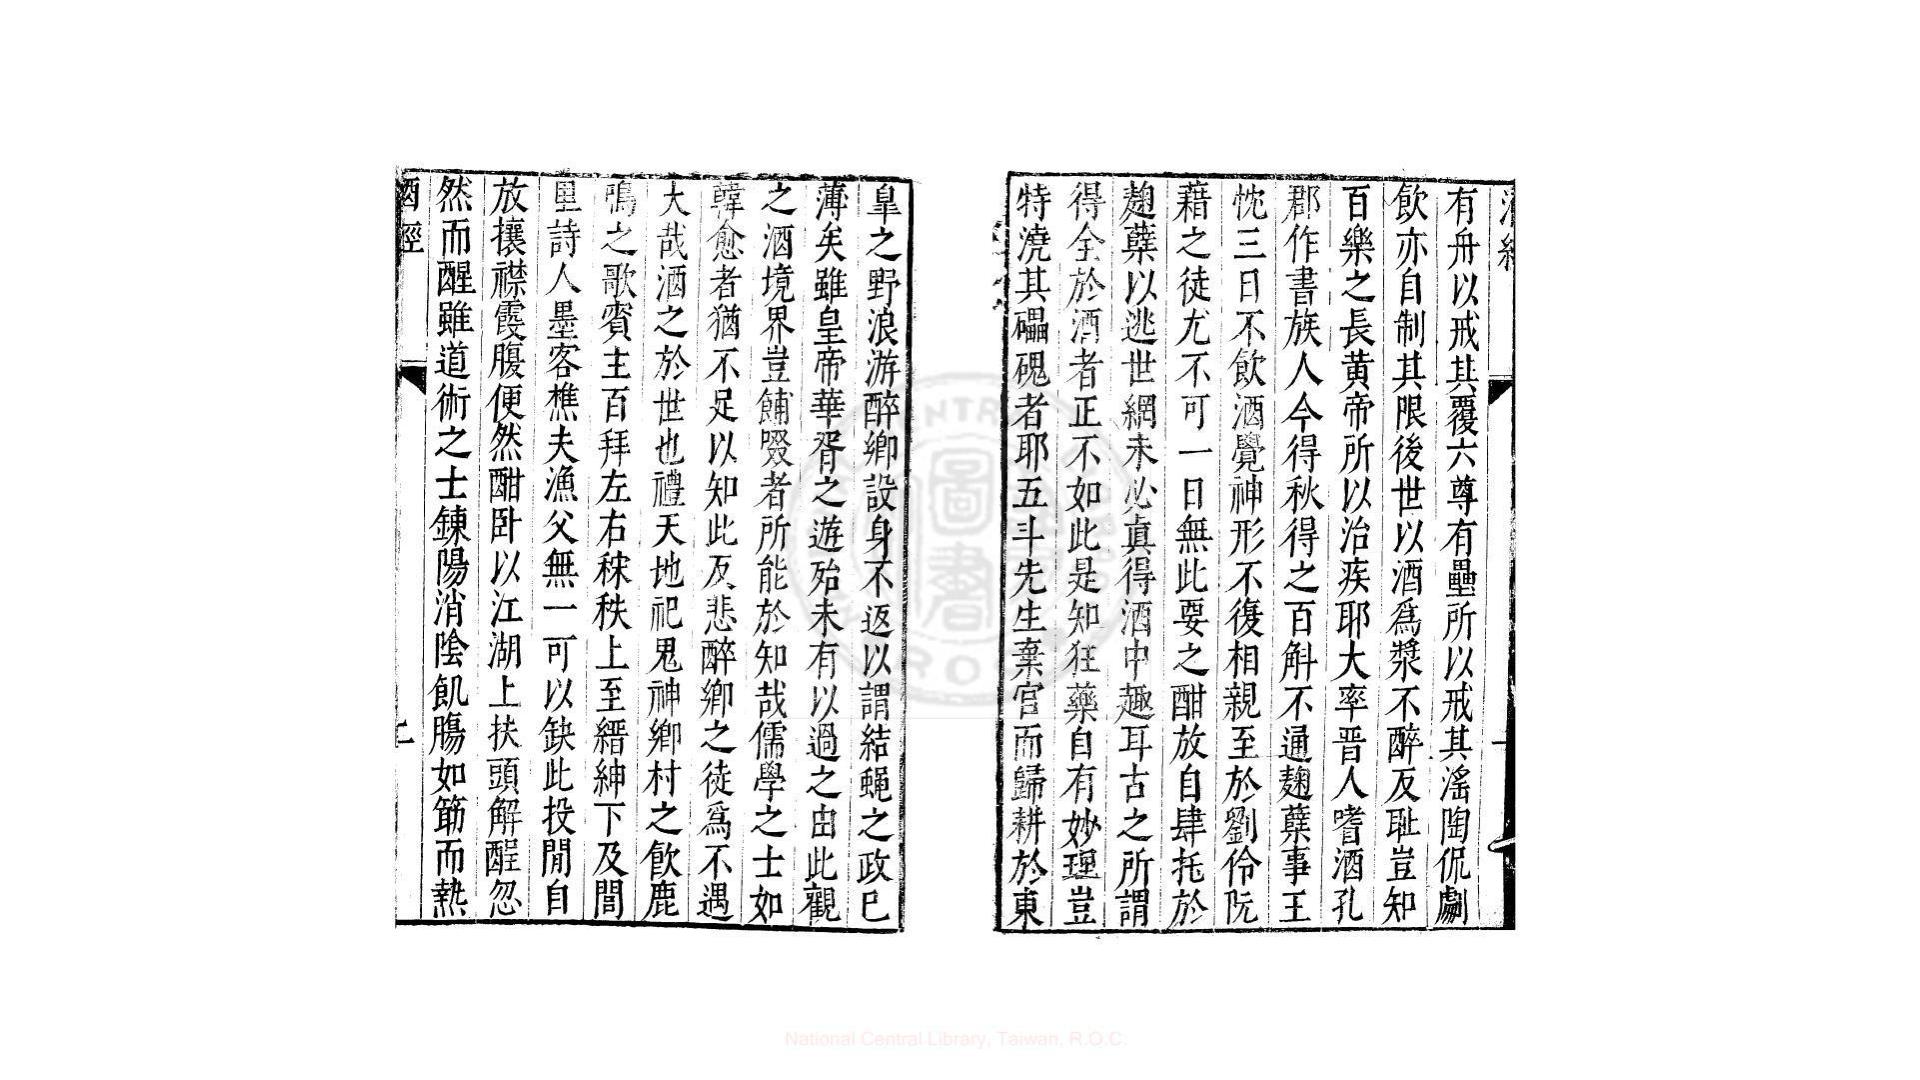 酒經
有舟以戒其覆六尊有罍所以戒其淫陶侃劇
飲亦自制其限後世以酒爲漿不醉反耻豈知
百樂之長黄帝所以治疾耶大率晋人嗜酒孔
郡作書族人今得秋得之百斛不通麹蘖事王
忱三日不飲酒覺神形不復相親至於劉伶阮
藉之徒尤不可一日無此要之酣放自肆托於
麹蘖以逃世網未必真得酒中趣耳古之所謂
得全於酒者正不如此是知狂藥自有妙理豈
特澆其礧磈者耶五斗先生棄官而歸耕於東
臯之野浪游醉鄉設身不返以謂結蝇之政已
薄矣雖皇帝華胥之遊殆未有以過之由此觀
之酒境界豈餔啜者所能於知哉儒學之士如
韓愈者猶不足以知此反悲醉鄉之徒爲不遇
大哉酒之於世也禮天地祀鬼神鄉村之飲鹿
鳴之歌賓主百拜左右秣秩上至縉紳下及閭
里詩人墨客樵夫漁父無一可以缺此投閒自
放攘襟霞腹便然酣卧以江湖上扶頭解酲忽
然而醒雖道術之士錬陽消陰飢膓如筯而熱
酒經
National Central Library, Taiwan, R.O.C.